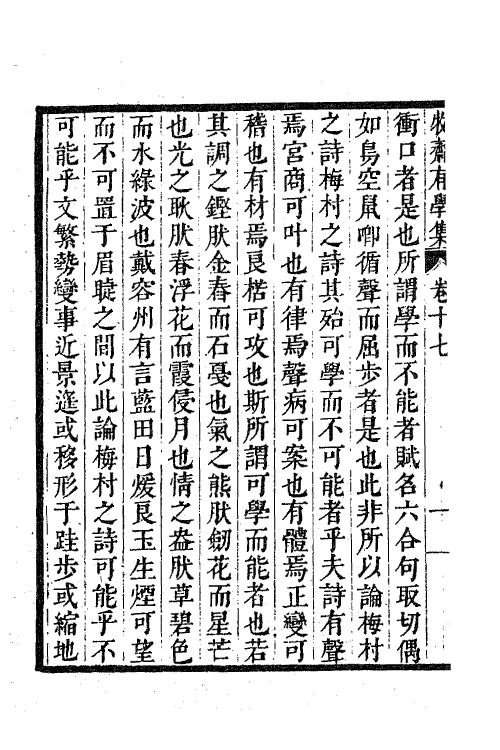 牧齋有學集 卷十七 一
衝口者是也所謂學而不能者賦名六合句取切偶
如鳥空鼠唧循聲而屈步者是也此非所以論梅村
之詩梅村之詩其殆可學而不可能者乎夫詩有聲
焉宮商可叶也有律焉聲病可案也有體焉正變可
稽也有材焉良楛可攻也斯所謂可學而能者也若
其調之鏗肰金舂而石戞也氣之熊肰劒花而星芒
也光之耿肰春浮花而霞侵月也情之盎肰草碧色
而水綠波也戴容州有言藍田日煖良玉生煙可望
而不可置于眉睫之間以此論梅村之詩可能乎不
可能乎文繁勢變事近景遙或移形于跬步或縮地